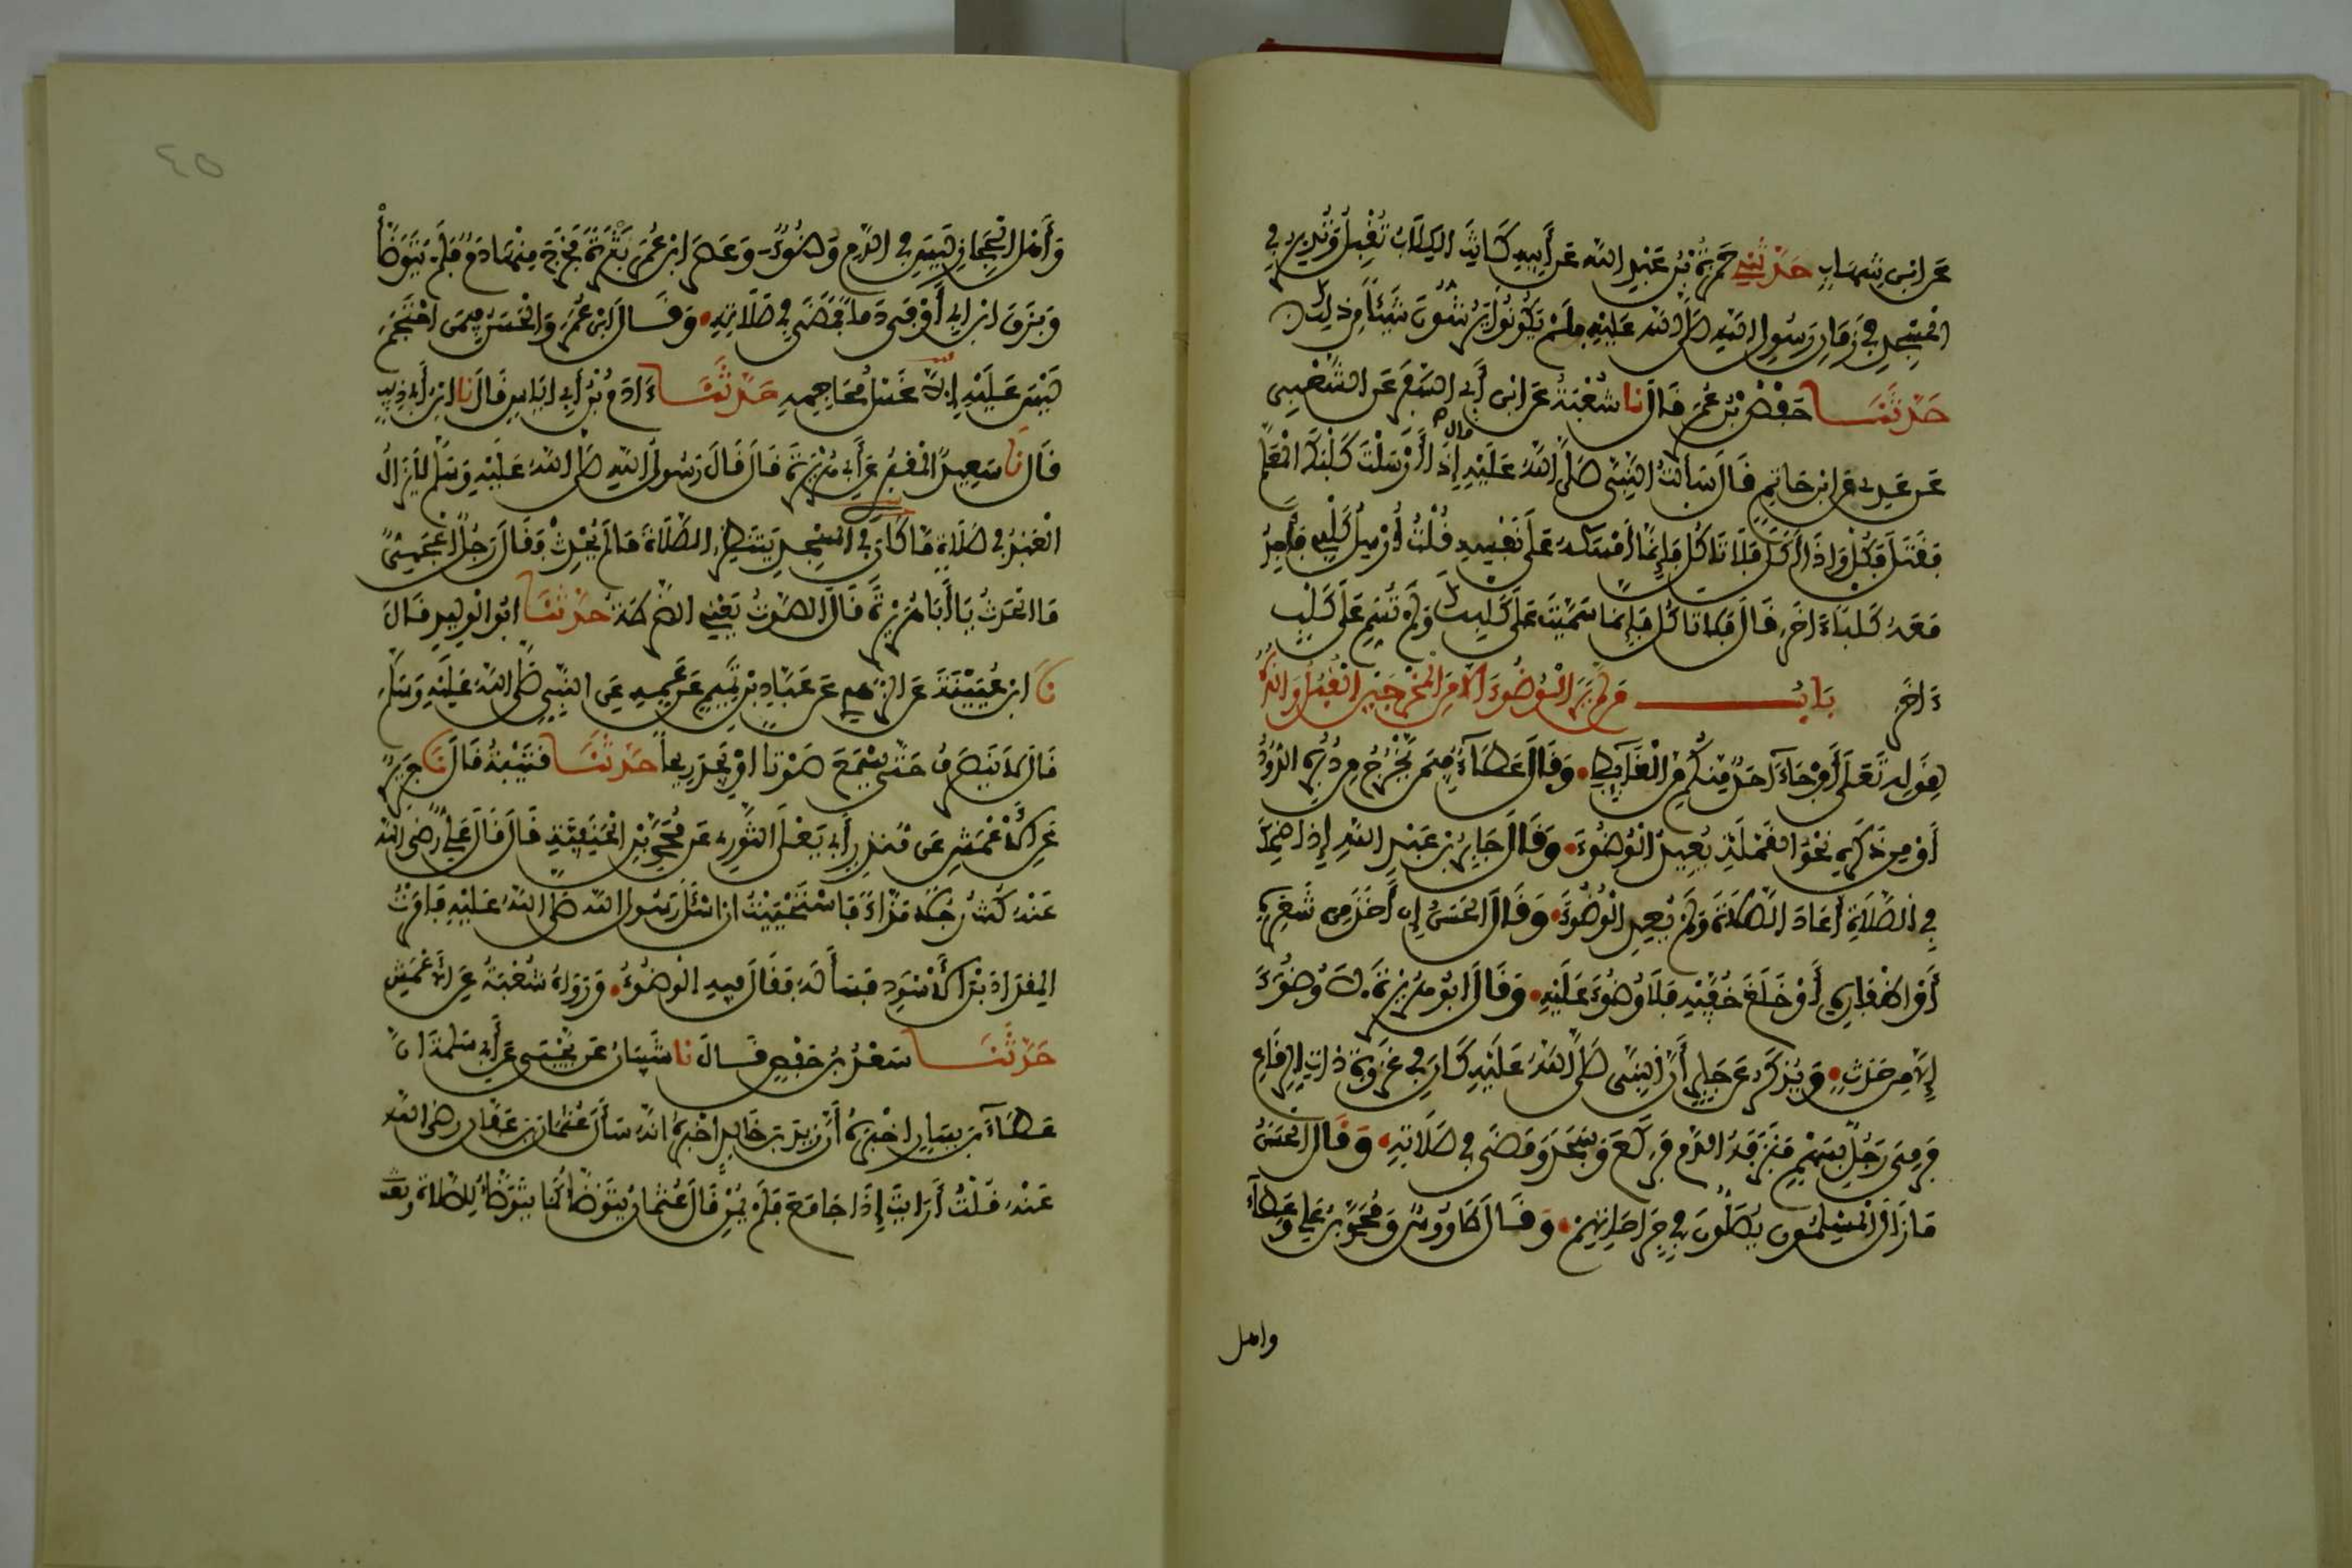 عَنِ ابْنِ شِهَابٍ حَدَّثَنِي حَمْزَةُ بْنُ عَبْدِ اللهِ عَنْ أَبِيهِ كَانَتِ الْكِلَابُ تُقْبِلُ وَتُدْبِرُ فِي
الْمَسْجِدِ فِي زَمَانِ رَسُولِ اللهِ صَلَّى اللهُ عَلَيْهِ فَلَمْ يَكُونُوا يَرُشُّونَ شَيْئًا مِنْ ذَلِكَ
حَدَّثَنَا حَفْصُ بْنُ عُمَرَ قَالَ نا شُعْبَةُ عَنِ ابْنِ أَبِي السَّفَرِ عَنِ الشَّعْبِيِّ
عَنْ عَدِيِّ بْنِ حَاتِمٍ قَالَ سَأَلْتُ النَّبِيَّ صَلَّى اللهُ عَلَيْهِ قال إِذَا أَرْسَلْتَ كَلْبَكَ الْمُعَلَّمَ
فَقَتَلَ فَكُلْ وَإِذَا أَكَلَ فَلَا تَأْكُلْ فَإِنَّمَا أَمْسَكَهُ عَلَى نَفْسِهِ قُلْتُ أُرْسِلُ كَلْبِي فَأَجِدُ
مَعَهُ كَلْبًا ءَاخَرَ قَالَ فَلَا تَأْكُلْ فَإِنَّمَا سَمَّيْتَ عَلَى كَلْبِكَ وَلَمْ تُسَمِّ عَلَى كَلْبٍ
ءَاخَرَ بَابُ مَنْ لَمْ يَرَ الْوُضُوءَ إِلَّا مِنَ الْمَخْرَجَيْنِ الْقُبُلِ وَالدُّبُرِ
لِقَوْلِهِ تَعَلَى أَوْ جَاءَ أَحَدٌ مِنْكُمْ مِنَ الْغَائِطِ وَقَالَ عَطَاءٌ فِيمَنْ يَخْرُجُ مِنْ دُبُرِهِ الدُّودُ
أَوْ مِنْ ذَكَرِهِ نَحْوُ الْقَمْلَةِ يُعِيدُ الْوُضُوءَ وَقَالَ جَابِرُ بْنُ عَبْدِ اللهِ إِذَا ضَحِكَ
فِي الصَّلَاةِ أَعَادَ الصَّلَاةَ وَلَمْ يُعِدِ الْوُضُوءَ وَقَالَ الْحَسَنُ إِنْ أَخَذَ مِنْ شَعَرِهِ
أَوْ أَظْفَارِهِ أَوْ خَلَعَ خُفَّيْهِ فَلَا وُضُوءَ عَلَيْهِ وَقَالَ أَبُو هُرَيْرَةَ لَا وُضُوءَ
إِلَّا مِنْ حَدَثٍ وَيُذْكَرُ عَنْ جَابِرٍ أَنَّ النَّبِيَّ صَلَّى اللهُ عَلَيْهِ كَانَ فِي غَزْوَةِ ذَاتِ الرِّقَاعِ
فَرُمِيَ رَجُلٌ بِسَهْمٍ فَنَزَفَهُ الدَّمُ فَرَكَعَ وَسَجَدَ وَمَضَى فِي صَلَاتِهِ وَقَالَ الْحَسَنُ
مَا زَالَ الْمُسْلِمُونَ يُصَلُّونَ فِي جِرَاحَاتِهِمْ وَقَالَ طَاوُوسٌ وَمُحَمَّدُ بْنُ عَلِيٍّ وَعَطَاءٌ
واهل
٤٥
وَأَهْلُ الْحِجَازِ لَيْسَ فِي الدَّمِ وُضُوءٌ وَعَصَرَ ابْنُ عُمَرَ بَثْرَةً فَخَرَجَ مِنْهَا دَمٌ فَلَمْ يَتَوَضَّأْ
وَبَزَقَ ابْنُ أَبِي أَوْفَى دَمًا فَمَضَى فِي صَلَاتِهِ وَقَالَ ابْنُ عُمَرَ وَالْحَسَنُ فِيمَنِ احْتَجَمَ
لَيْسَ عَلَيْهِ إِلَّا غَسْلُ مَحَاجِمِهِ حَدَّثَنَا ءَادَمُ بْنُ أَبِي إِيَاسٍ قَالَ نا ابْنُ أَبِي ذِيبٍ
قَالَ نَا سَعِيدٌ الْمَقْبُرِيُّ عَنْ أَبِي هُرَيْرَةَ قَالَ قَالَ رَسُولُ اللهِ صَلَّى اللهُ عَلَيْهِ وَسَلَّمَ لَا يَزَالُ
الْعَبْدُ فِي صَلَاةٍ مَا كَانَ فِي الْمَسْجِدِ يَنْتَظِرُ الصَّلَاةَ مَا لَمْ يُحْدِثْ فَقَالَ رَجُلٌ أَعْجَمِيٌّ
مَا الْحَدَثُ يَا أَبَا هُرَيْرَةَ قَالَ الصَّوْتُ يَعْنِي الضَّرْطَةَ حَدَّثَنَا أَبُو الْوَلِيدِ قَالَ
نَا ابْنُ عُيَيْنَةَ عَنِ الزُّهْرِيِّ عَنْ عَبَّادِ بْنِ تَمِيمٍ عَنْ عَمِّهِ عَنِ النَّبِيِّ صَلَّى اللهُ عَلَيْهِ وَسَلَّمَ
قَالَ لَا يَنْصَرِفْ حَتَّى يَسْمَعَ صَوْتًا أَوْ يَجِدَ رِيحًا حَدَّثَنَا قُتَيْبَةُ قَالَ نَا جَرِيرٌ
عَنِ الْأَعْمَشِ عَنْ مُنْذِرٍ أَبِي يَعْلَى الثَّوْرِيِّ عَنْ مُحَمَّدِ بْنِ الْحَنَفِيَّةِ قَالَ قَالَ عَلِيٌّ رَضِيَ اللهُ
عَنْهُ كُنْتُ رَجُلًا مَذَّاءً فَاسْتَحْيَيْتُ أَنْ أَسْأَلَ رَسُولَ اللهِ صَلَّى اللهُ عَلَيْهِ فَأَمَرْتُ
الْمِقْدَادَ بْنَ الْأَسْوَدِ فَسَأَلَهُ فَقَالَ فِيهِ الْوُضُوءُ وَرَوَاهُ شُعْبَةُ عَنِ الْأَعْمَشِ
حَدَّثَنَا سَعْدُ بْنُ حَفْصٍ قَالَ نا شَيْبَانُ عَنْ يَحْيَى عَنْ أَبِي سَلَمَةَ أَنَّ
عَطَاءَ بْنَ يَسَارٍ أَخْبَرَهُ أَنَّ زَيْدَ بْنَ خَالِدٍ أَخْبَرَهُ أَنَّهُ سَأَلَ عُثْمَانَ بْنَ عَفَّانَ رَضِيَ اللهُ
عَنْهُ قُلْتُ أَرَأَيْتَ إِذَا جَامَعَ فَلَمْ يُمْنِ قَالَ عُثْمَانُ يَتَوَضَّأُ كَمَا يَتَوَضَّأُ لِلصَّلَاةِ